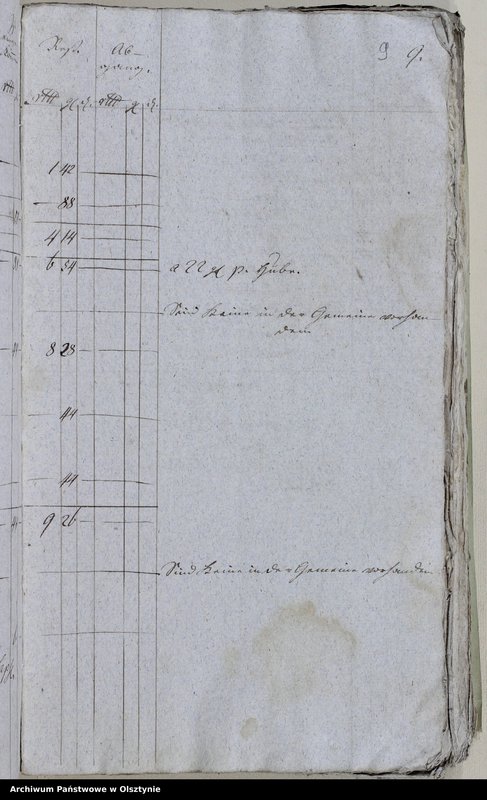 9 9.
Rest. Ab-
gang.
rthl g d. rthl g d.
1 42
— 88
4 14
6 54 a 22 g p. Hube.
Sind keine in der Gemeine vorhan
den
8 28
44
44
9 26
Sind keine in der Gemeine vorhanden
Archiwum Państwowe w Olsztynie